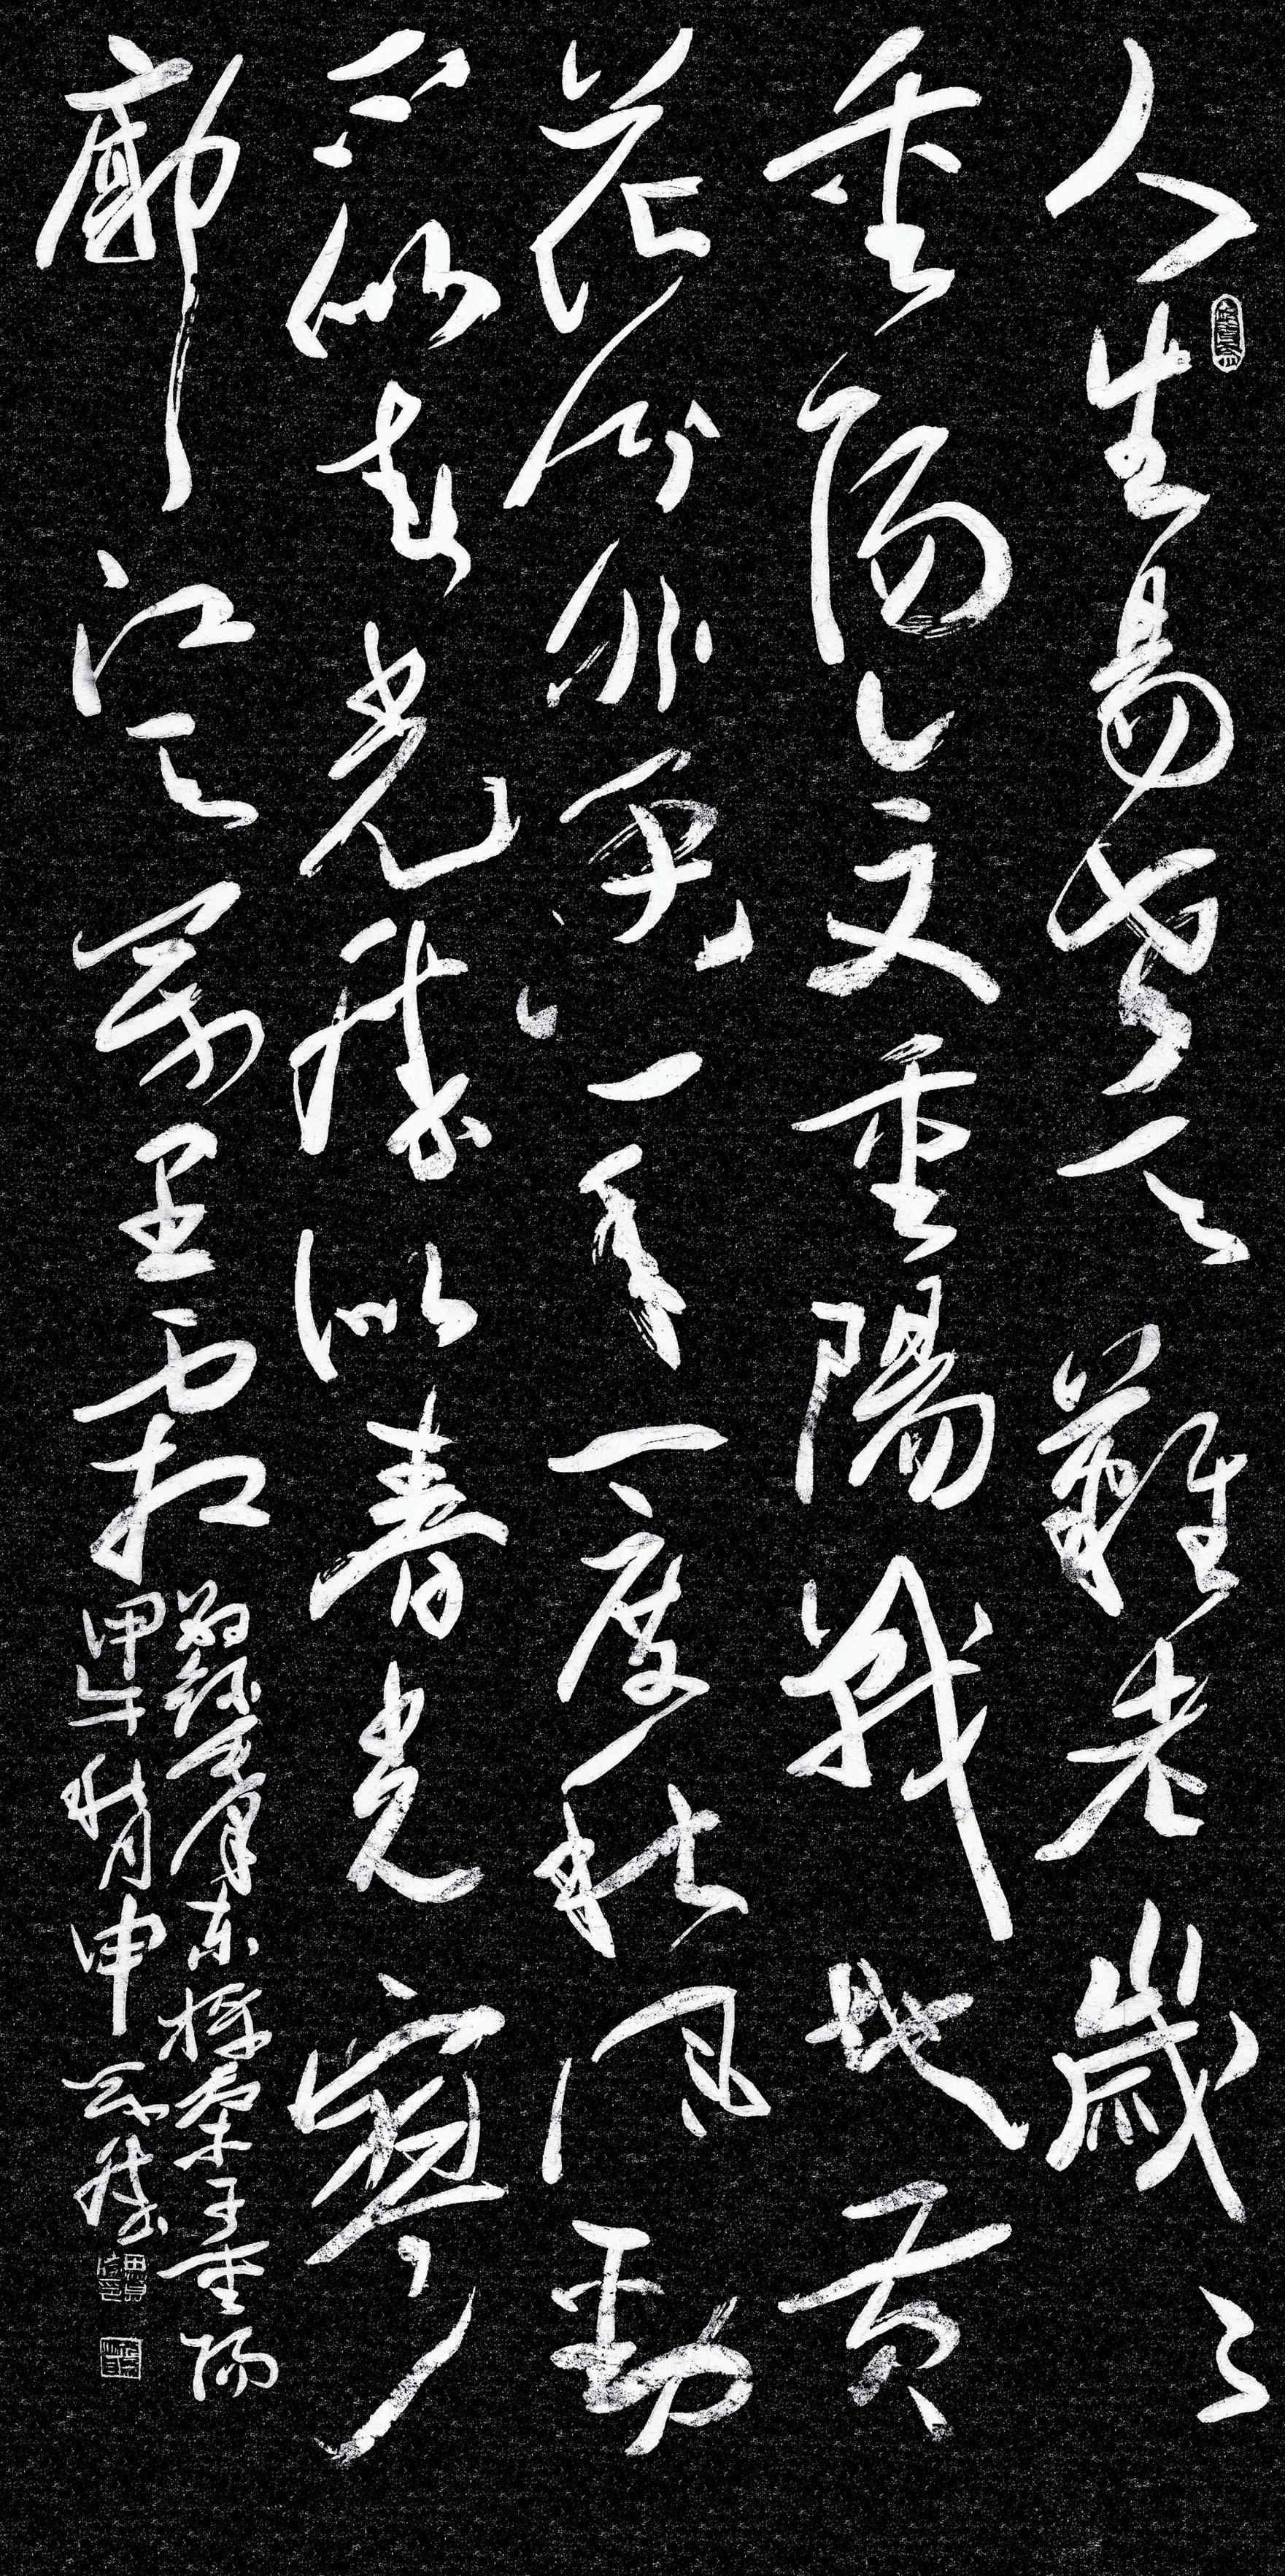 人生易老天難老歲々
重陽今又重陽戰地黄
花分外香一年一度秋風勁
不似春光勝似春光寥
廓江天萬里霜
錄毛澤东採桑子重陽
甲午秋月申